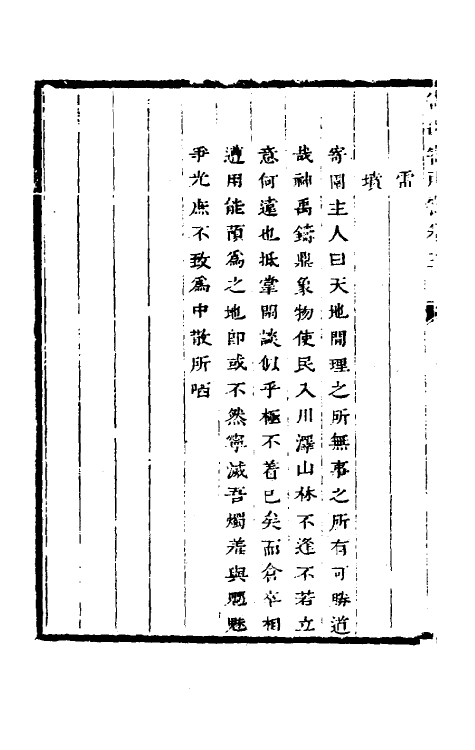 雷
墳
寄園主人曰天地間理之所無事之所有可勝道
哉神禹鑄鼎象物使民入川澤山林不逢不若立
意何遠也抵掌閒談似乎極不着已矣而倉卒相
遭用能預為之地即或不然寧滅吾燭羞與魍魅
爭光庶不致為中散所哂